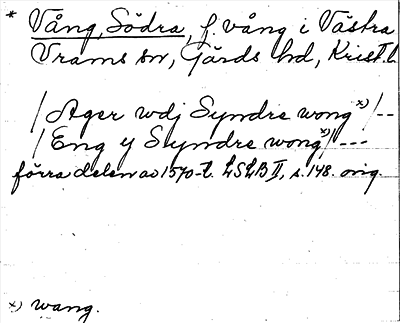 * Vång, Södra, f. vång i Västra
Vrams sn, Gärds hd, Krist. l.
/ Ager wdj Syndre wong x) / --
/ Eng y Syndre wong x) / ---
förra delen av 1570-t. LSLB II, s. 148. orig.
x) wang.